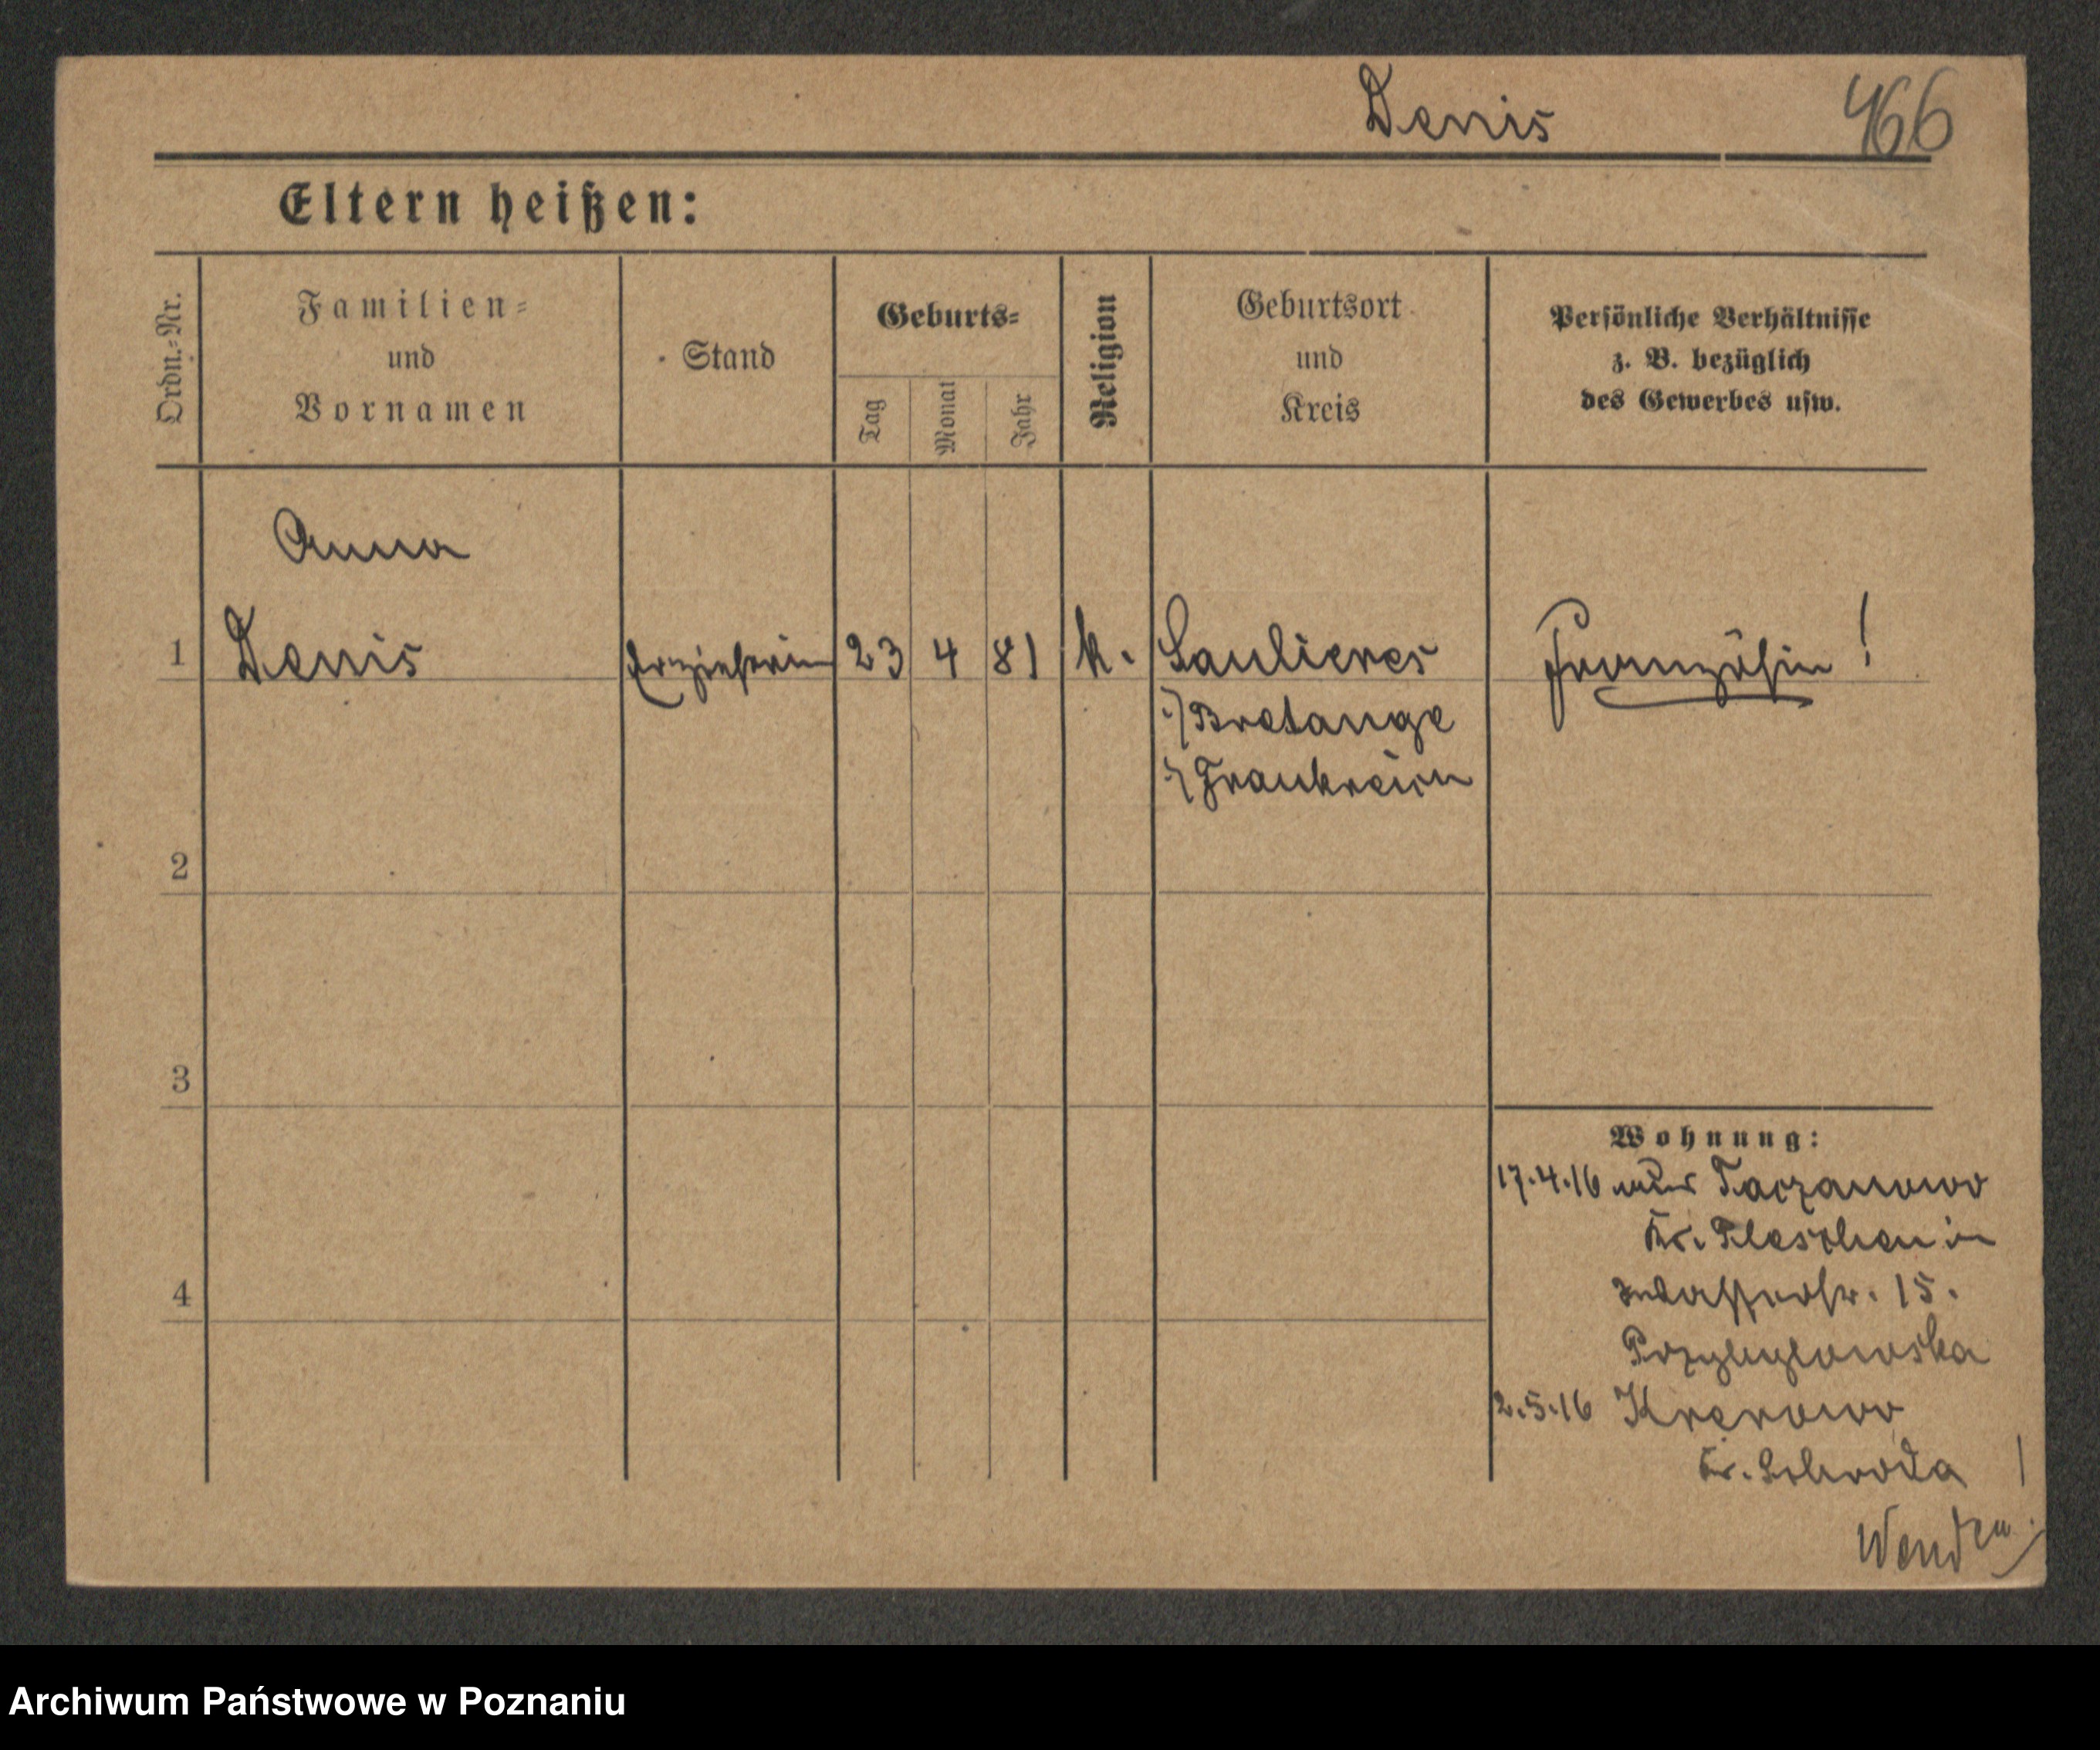 Denis 466
Eltern heißen:
Ordn.-Nr.
Familien-
und
Vornamen
Stand
Geburts-
Tag
Monat
Jahr
Religion
Geburtsort
und
Kreis
Persönliche Verhältnisse
z. B. bezüglich
des Gewerbes usw.
Anna
1 Denis Erzieherin 23 4 81 k. Saulieres Französin!
Bretange
Frankreich
2
3
4
Wohnung:
17.4.16 aus Taczanowo
Kr. Pleschen in
15.
2.5.16 Krerowo
Kr. Schroda
Wenden!
Archiwum Państwowe w Poznaniu